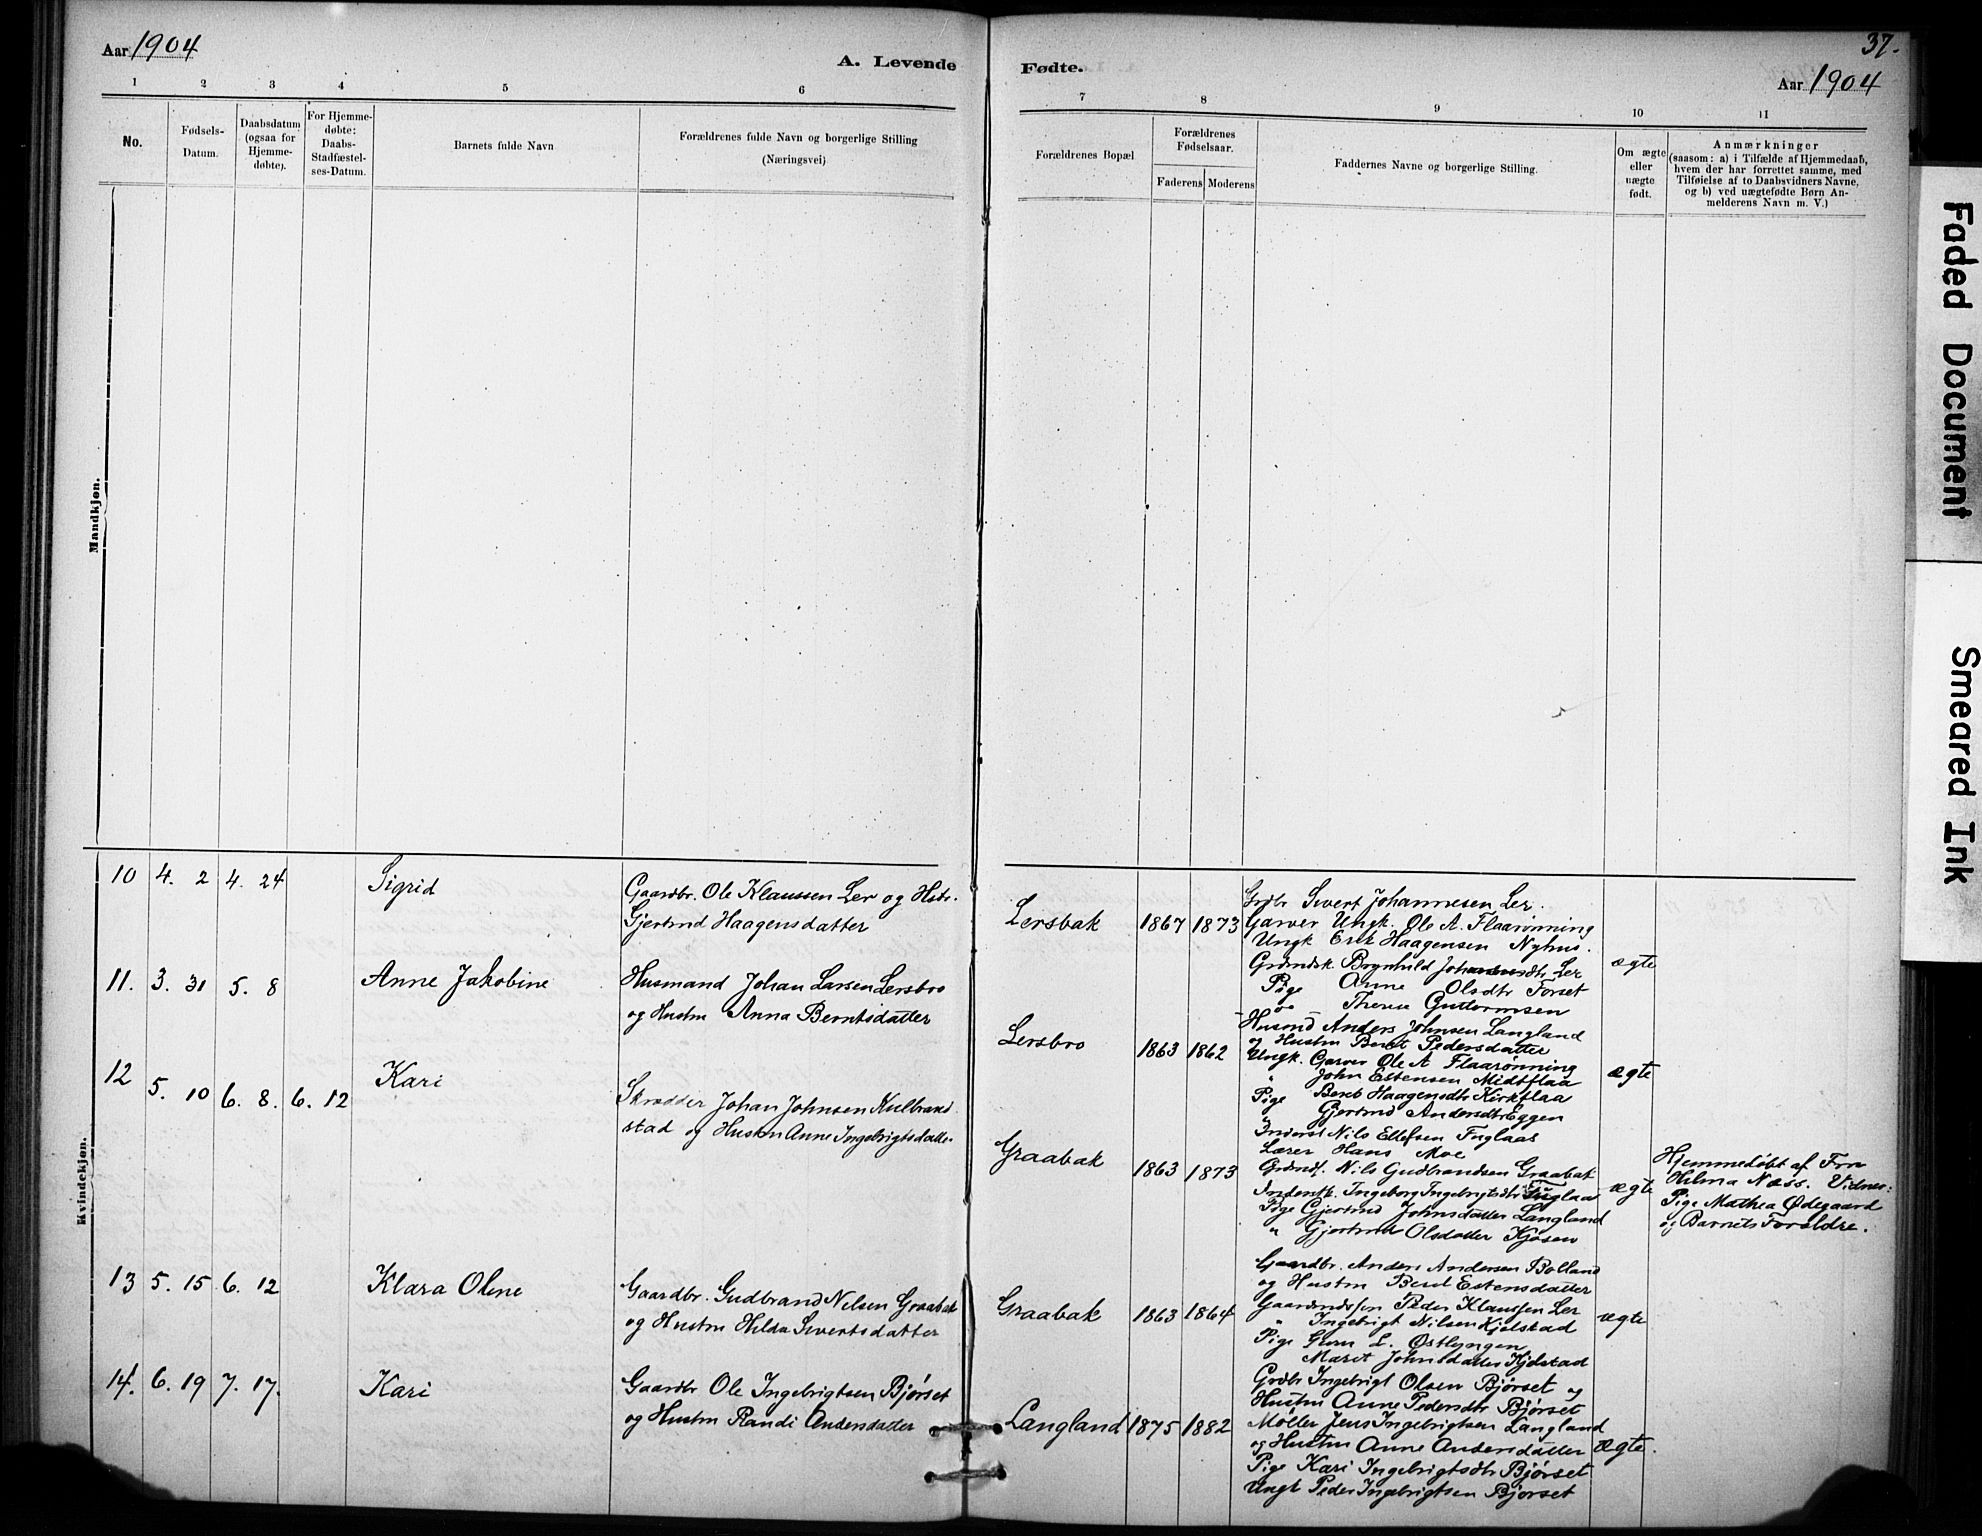 Aar 1904
A. Levende
Fødte.
37.
Aar 1904
1 2 3 4 5 6
7 8 9 10 11
No.
Fødsels-
Datum.
Daabsdatum
(ogsaa for
Hjemme-
døbte).
For Hjemme-
døbte:
Daabs-
Stadfæstel-
ses-Datum.
Barnets fulde Navn
Forældrenes fulde Navn og borgerlige Stilling
(Næringsvei)
Forældrenes Bopæl
Forældrenes
Fødselsaar.
Faderens Moderens
Faddernes Navne og borgerlige Stilling.
Om ægte
eller
uægte
født.
Anmærkninger
(saasom: a) i Tilfælde af Hjemmedaab,
hvem der har forrettet samme, med
Tilføielse af to Daabsvidners Navne,
og b) ved uægtefødte Børn An-
melderens Navn m. V.)
Mandkjøn.
Kvindekjøn.
10 4. 2 4. 24 Sigrid
Gaardbr. Ole Klaussen Ler og Hstr.
Gjertrud Haagensdatter
Lersbak 1867 1873
Grdbr Sivert Johannesen Ler.
Garver Ungk. Ole A. Flaarønning
Ungk Erik Haagensen Nyhus.
Grdmdsk. Brynhild Johansdtr Ler
Pige Anne Olsdtr Forset
" Therese Guttormsen
ægte
11. 3. 31 5. 8 Anne Jakobine
Husmand Johan Larsen Lersbro
og Hustru Anna Berntsdatter
Lersbro 1863 1862
Husmd Anders Johnsen Langland
og Hustru Beret Pedersdatter
Ungk. Garver Ole A Flaarønning
" John Estensen Midtflaa
Pige Beret Haagensdtr Kirkflaa
" Gjertrud Andersdtr Eggen
ægte
12 5. 10 6. 8. 6. 12 Kari
Skrædder Johan Johnsen Kulbrand
stad og Hustru Anne Ingebrigtsdatter
Graabak 1863 1873
Inderst Nils Ellefsen Fuglaas
Lærer Hans Moe
Grdmdf. Nils Gudbrandsen Graabak
Inderstk. Ingeborg Ingebrigtsdtr Fuglaas
Pige Gjertrud Johnsdatter Langland
" Gjertrud Olsdatter Kjøsen
ægte
Hjemmedøbt af Fru
Helma Næss. Vidner:
Pige Mathea Ødegaard
og Barnets Forældre.
13 5. 15 6. 12 Klara Oline
Gaardbr. Gudbrand Nilsen Graabak
og Hustru Hilda Sivertsdatter
Graabak 1863 1864
Gaardbr. Anders Andersen Bolland
og Hustru Beret Estensdatter
Gaardmdssøn Peder Klaussen Ler
" Ingebrigt Nilsen Kjelstad
Pige Guru L. Østlyngen
Marit Johnsdatter Kjelstad
ægte
14. 6. 19 7. 17. Kari
Gaardbr Ole Ingebrigtsen Bjørset
og Hustru Randi Andersdatter
Langland 1875 1882
Grdbr Ingebrigt Olsen Bjørset og
Hustru Anne Pedersdtr Bjørset
Møller Jens Ingebrigtsen Langland
og Hustru Anne Andersdatter
Pige Kari Ingebrigtsdtr Bjørset
Ungk Peder Ingebrigtsen Bjørset
ægte.
Faded Document
Smeared Ink